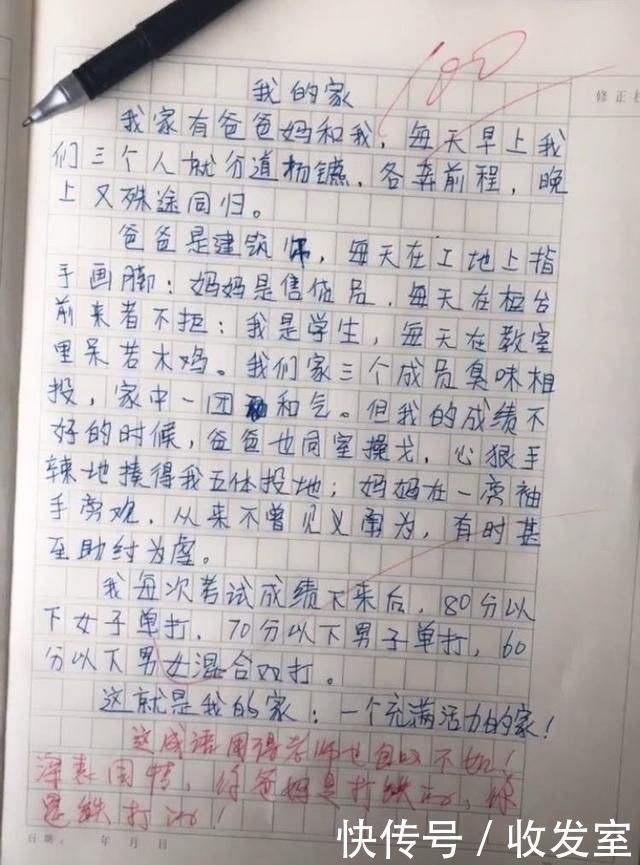 100
修正栏
我的家
我家有爸爸妈和我，每天早上我
们三个人就分道扬镳，各奔前程，晚
上又殊途同归。
爸爸是建筑师，每天在工地上指
手画脚；妈妈是售货员，每天在柜台
前来者不拒；我是学生，每天在教室
里呆若木鸡。我们家三个成员臭味相
投，家中一团和气。但我的成绩不
好的时候，爸爸也同室操戈，心狠手
辣地揍得我五体投地；妈妈在一旁袖
手旁观，从来不曾见义勇为，有时甚
至助纣为虐。
我每次考试成绩下来后，80分以
下女子单打，70分以下男子单打，60
分以下男女混合双打。
这就是我的家：一个充满活力的家！
这成语用得老师也自叹不如！
深表同情，你爸妈是打铁的，你
是铁打的！
日期： 年 月 日
快传号／收发室